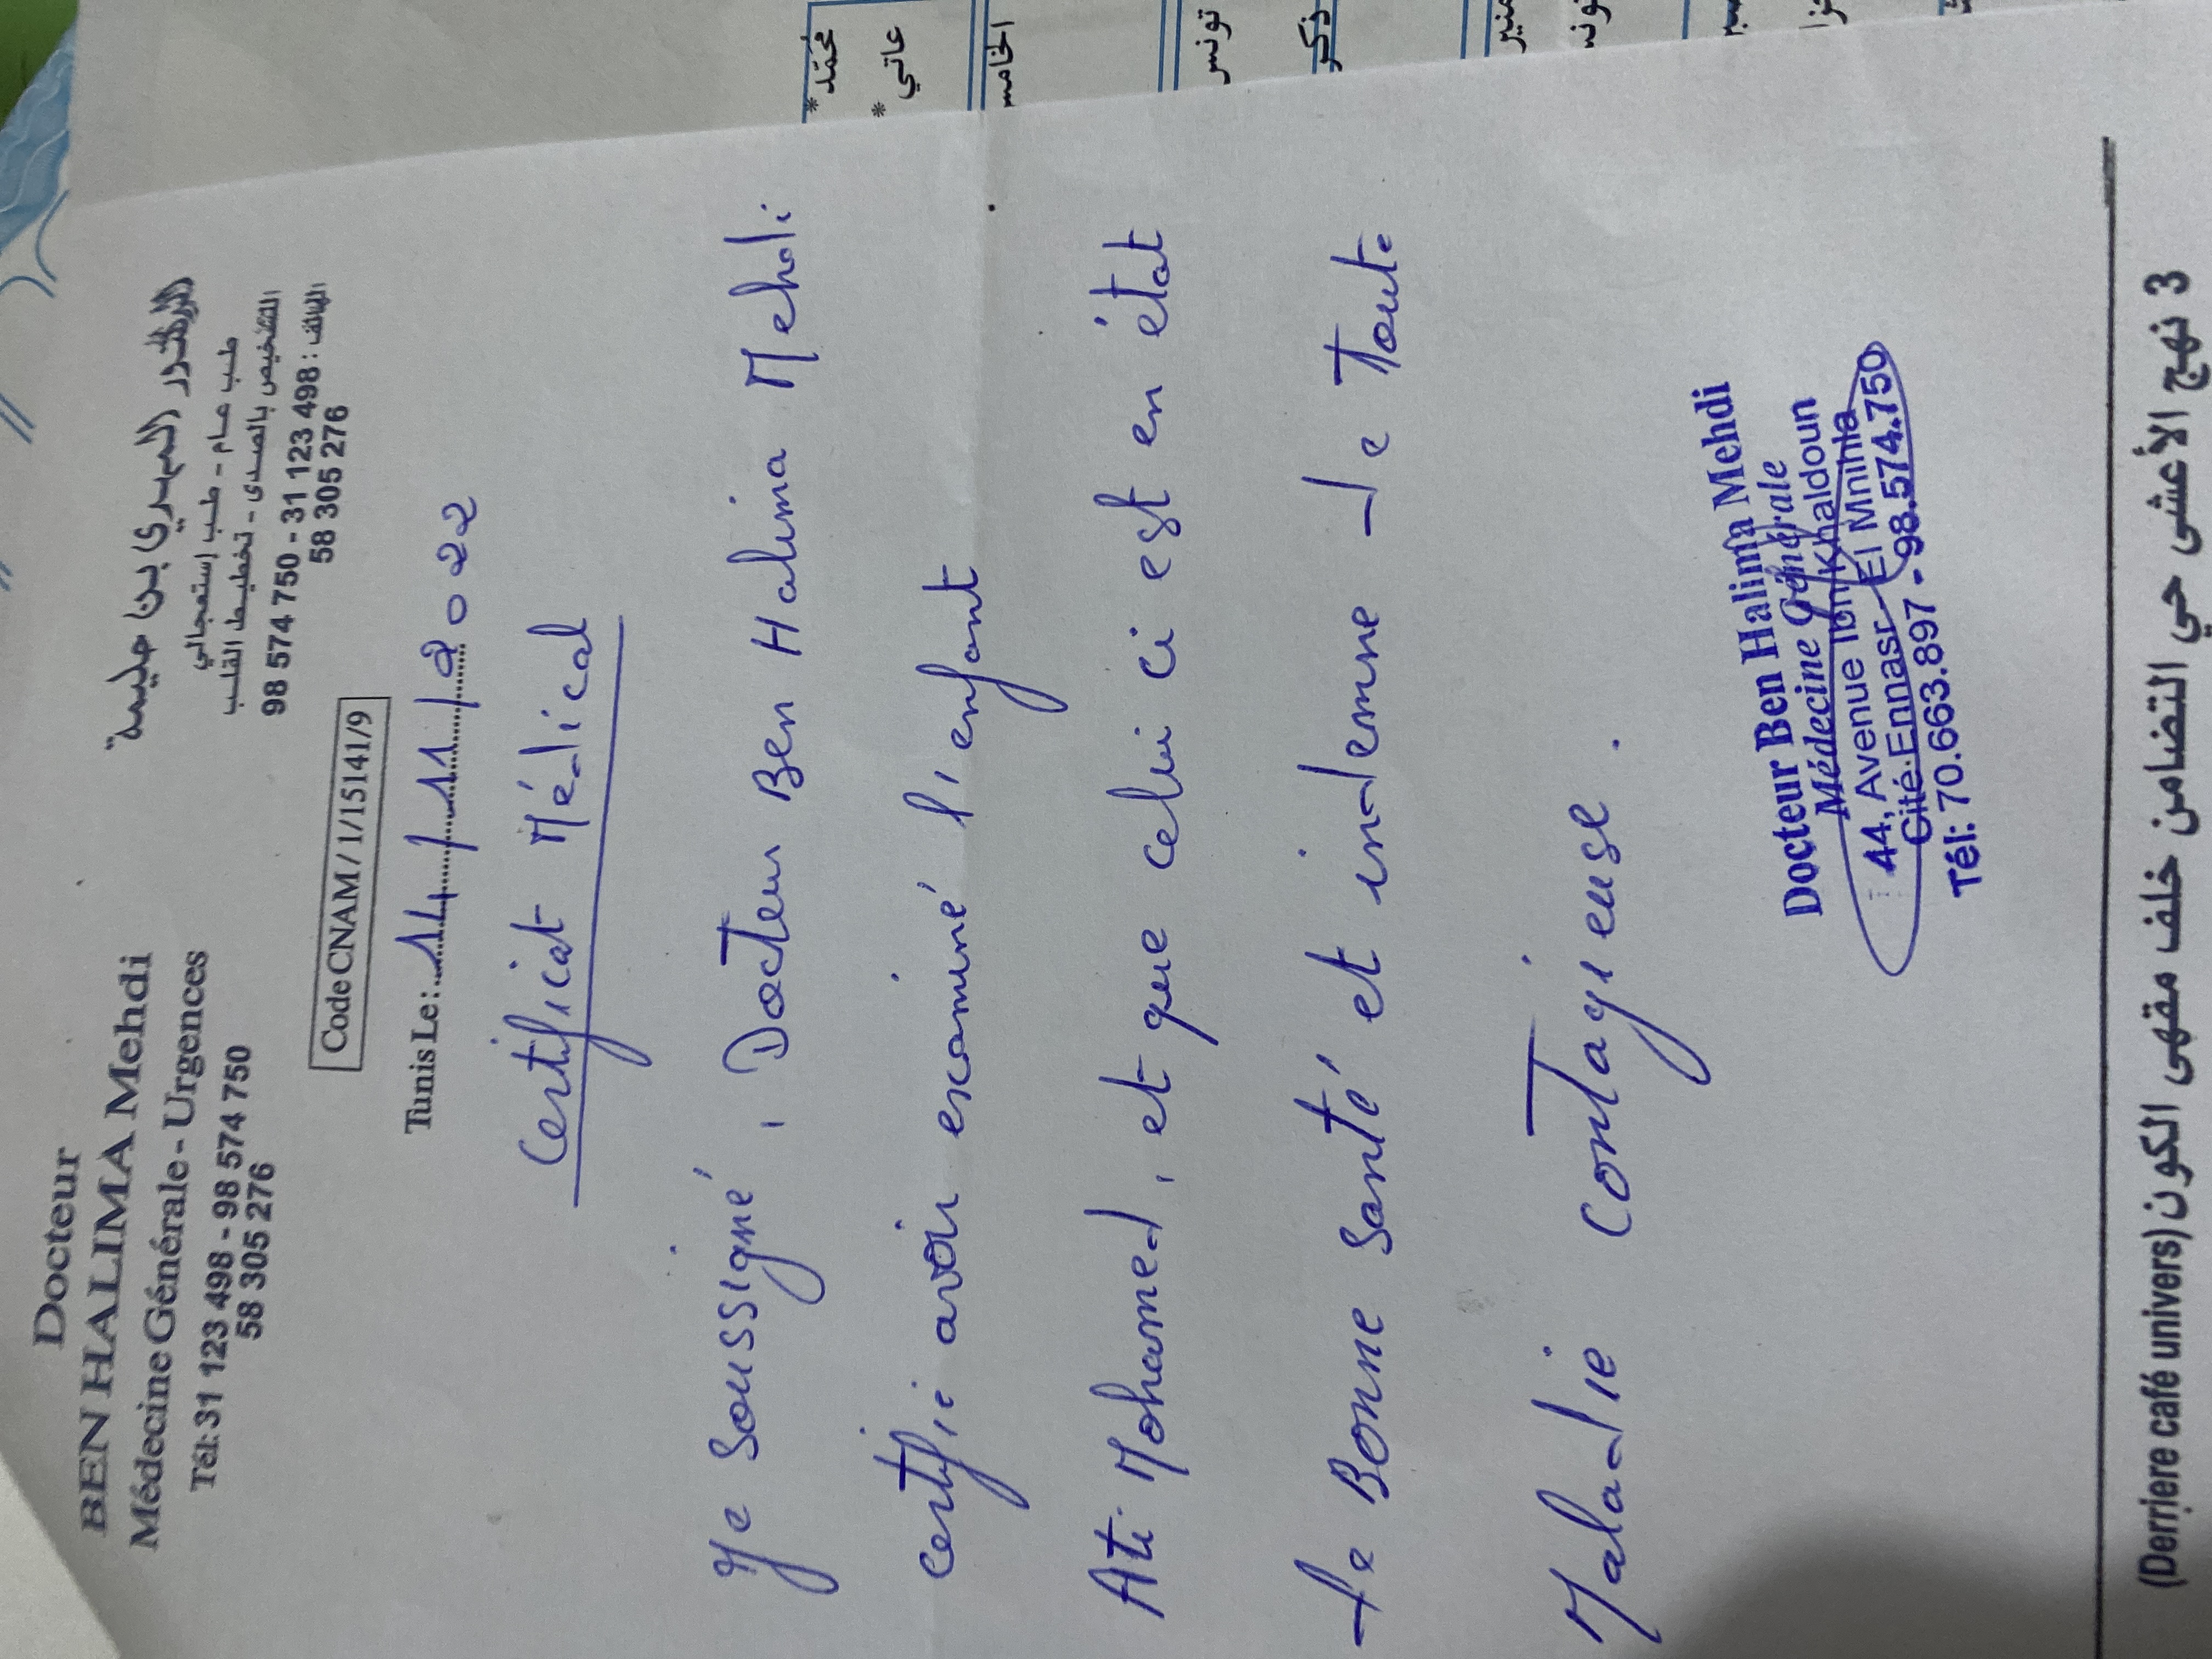 Docteur
BEN HALIMA Mehdi
Médecine Générale - Urgences
Tél: 31 123 498 - 98 574 750
58 305 276
الدكتور المهدي بن حليمة
طب عام - طب إستعجالي
التشخيص بالصدى - تخطيط القلب
الهاتف : 498 123 31 - 750 574 98
58 305 276
Code CNAM / 1/15141/9
Tunis Le : 14/11/2022
Certificat Médical
Je soussigné, Docteur Ben Halima Mehdi
certifie avoir examiné l'enfant
Ati Mohamed, et que celui ci est en état
de Bonne santé et indemne de toute
Maladie contagieuse.
Docteur Ben Halima Mehdi
Médecine Générale
44, Avenue Ibn Khaldoun
Cité Ennasr El Mnihla
Tél: 70.663.897 - 98.574.750
3 نهج الأعشى حي التضامن خلف مقهى الكون (Derriere café univers)
محمد *
عاتي *
تونس
ذكر